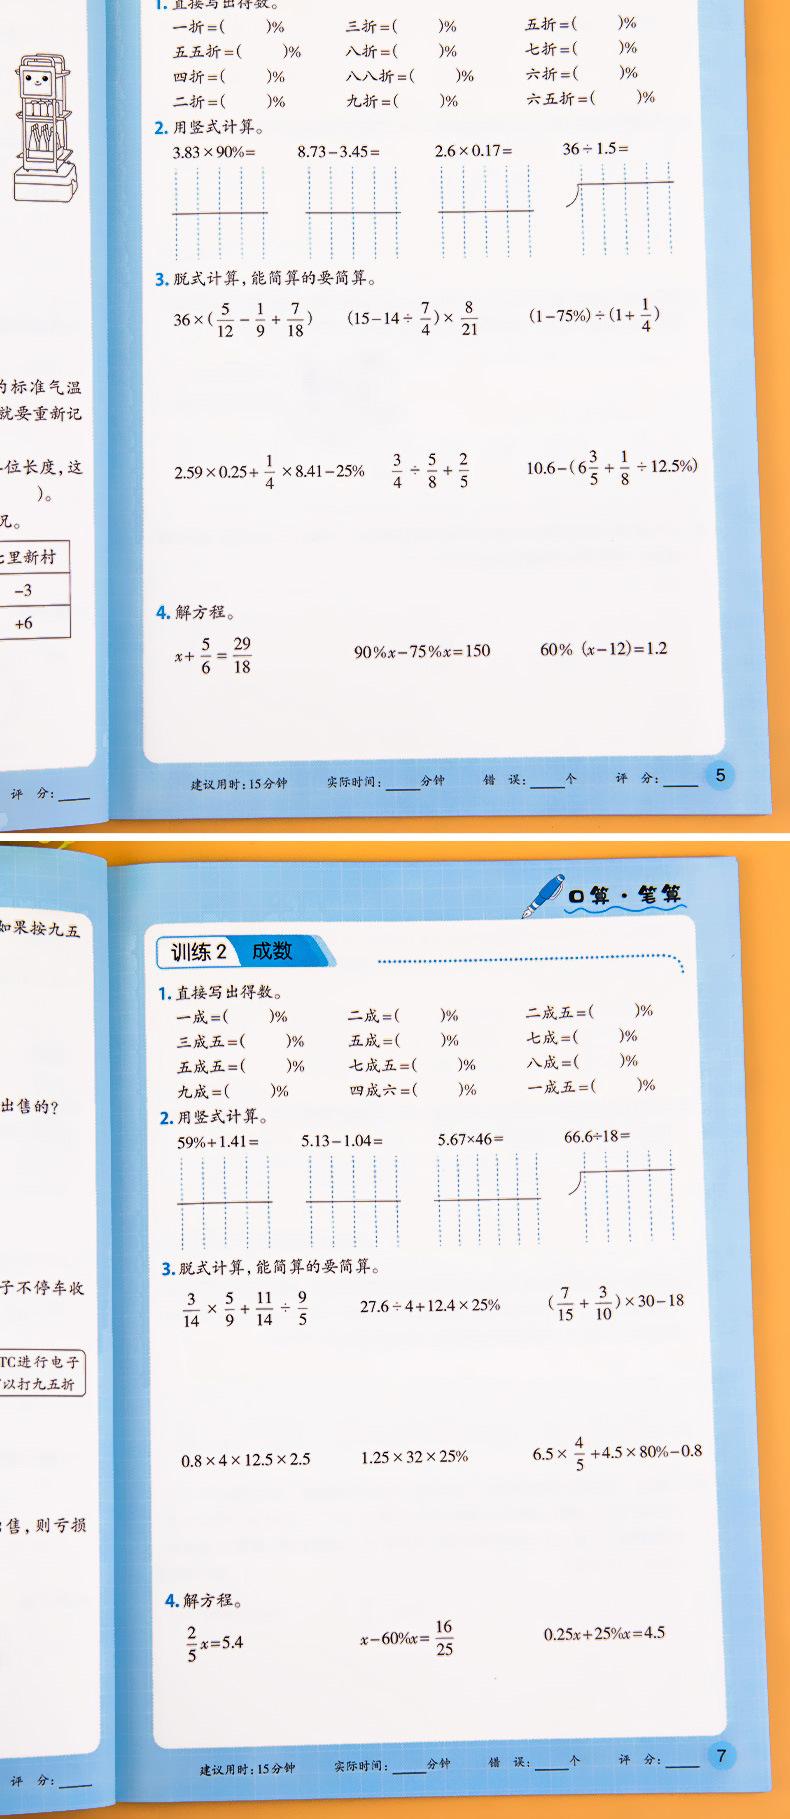 1.直接写出得数。
一折=(　　)%　三折=(　　)%　五折=(　　)%
五五折=(　　)%　八折=(　　)%　七折=(　　)%
四折=(　　)%　八八折=(　　)%　六折=(　　)%
二折=(　　)%　九折=(　　)%　六五折=(　　)%
2.用竖式计算。
3.83×90%=　8.73-3.45=　2.6×0.17=　36÷1.5=
3.脱式计算，能简算的要简算。
36×(5/12-1/9+7/18)　(15-14÷7/4)×8/21　(1-75%)÷(1+1/4)
2.59×0.25+1/4×8.41-25%　3/4÷5/8+2/5　10.6-(6 3/5+1/8÷12.5%)
4.解方程。
x+5/6=29/18　90%x-75%x=150　60%(x-12)=1.2
建议用时:15分钟　实际时间:____分钟　错 误:____个　评 分:____
5
的标准气温
就要重新记
位长度，这
)。
况。
里新村
-3
+6
评 分:____
口算·笔算
训练2 成数
1.直接写出得数。
一成=(　　)%　二成=(　　)%　二成五=(　　)%
三成五=(　　)%　五成=(　　)%　七成=(　　)%
五成五=(　　)%　七成五=(　　)%　八成=(　　)%
九成=(　　)%　四成六=(　　)%　一成五=(　　)%
2.用竖式计算。
59%+1.41=　5.13-1.04=　5.67×46=　66.6÷18=
3.脱式计算，能简算的要简算。
3/14×5/9+11/14÷9/5　27.6÷4+12.4×25%　(7/15+3/10)×30-18
0.8×4×12.5×2.5　1.25×32×25%　6.5×4/5+4.5×80%-0.8
4.解方程。
2/5x=5.4　x-60%x=16/25　0.25x+25%x=4.5
建议用时:15分钟　实际时间:____分钟　错 误:____个　评 分:____
7
如果按九五
出售的?
子不停车收
TC进行电子
以打九五折
售，则亏损
评 分:____